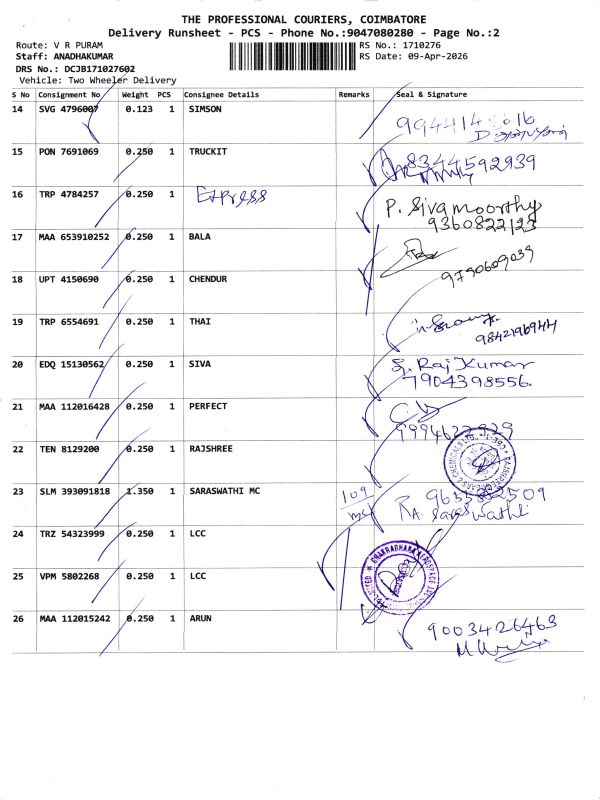 THE PROFESSIONAL COURIERS, COIMBATORE
Delivery Runsheet - PCS - Phone No.:9047080280 - Page No.:2
Route: V R PURAM
RS No.: 1710276
Staff: ANADHAKUMAR
RS Date: 09-Apr-2026
DRS No.: DCJB171027602
Vehicle: Two Wheeler Delivery
S No Consignment No Weight PCS Consignee Details Remarks Seal & Signature
14 SVG 4796007 0.123 1 SIMSON
15 PON 7691069 0.250 1 TRUCKIT 8344592939
16 TRP 4784257 0.250 1 Express P. Sivamoorthy
9360822123
17 MAA 653910252 0.250 1 BALA
9790609039
18 UPT 4150690 0.250 1 CHENDUR
19 TRP 6554691 0.250 1 THAI
9842196944
20 EDQ 15130562 0.250 1 SIVA S. Raj Kumar
7904398556
21 MAA 112016428 0.250 1 PERFECT
22 TEN 8129200 0.250 1 RAJSHREE
23 SLM 393091818 1.350 1 SARASWATHI MC 109
Saraswathi
24 TRZ 54323999 0.250 1 LCC
25 VPM 5802268 0.250 1 LCC
26 MAA 112015242 0.250 1 ARUN 9003426463